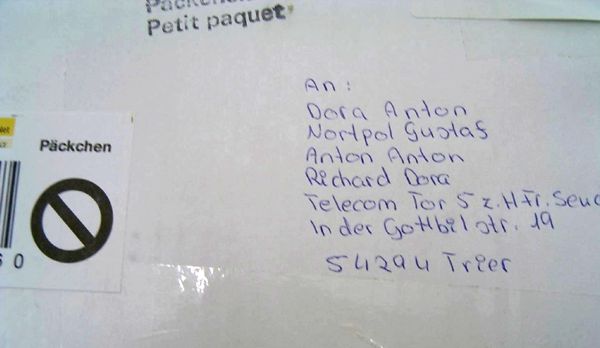 Petit paquet
Päckchen
An:
Dora Anton
Nortpol Gustaf
Anton Anton
Richard Dora
Telecom Tor 5 z.H Fr.
In der Gottbilstr. 19
54294 Trier